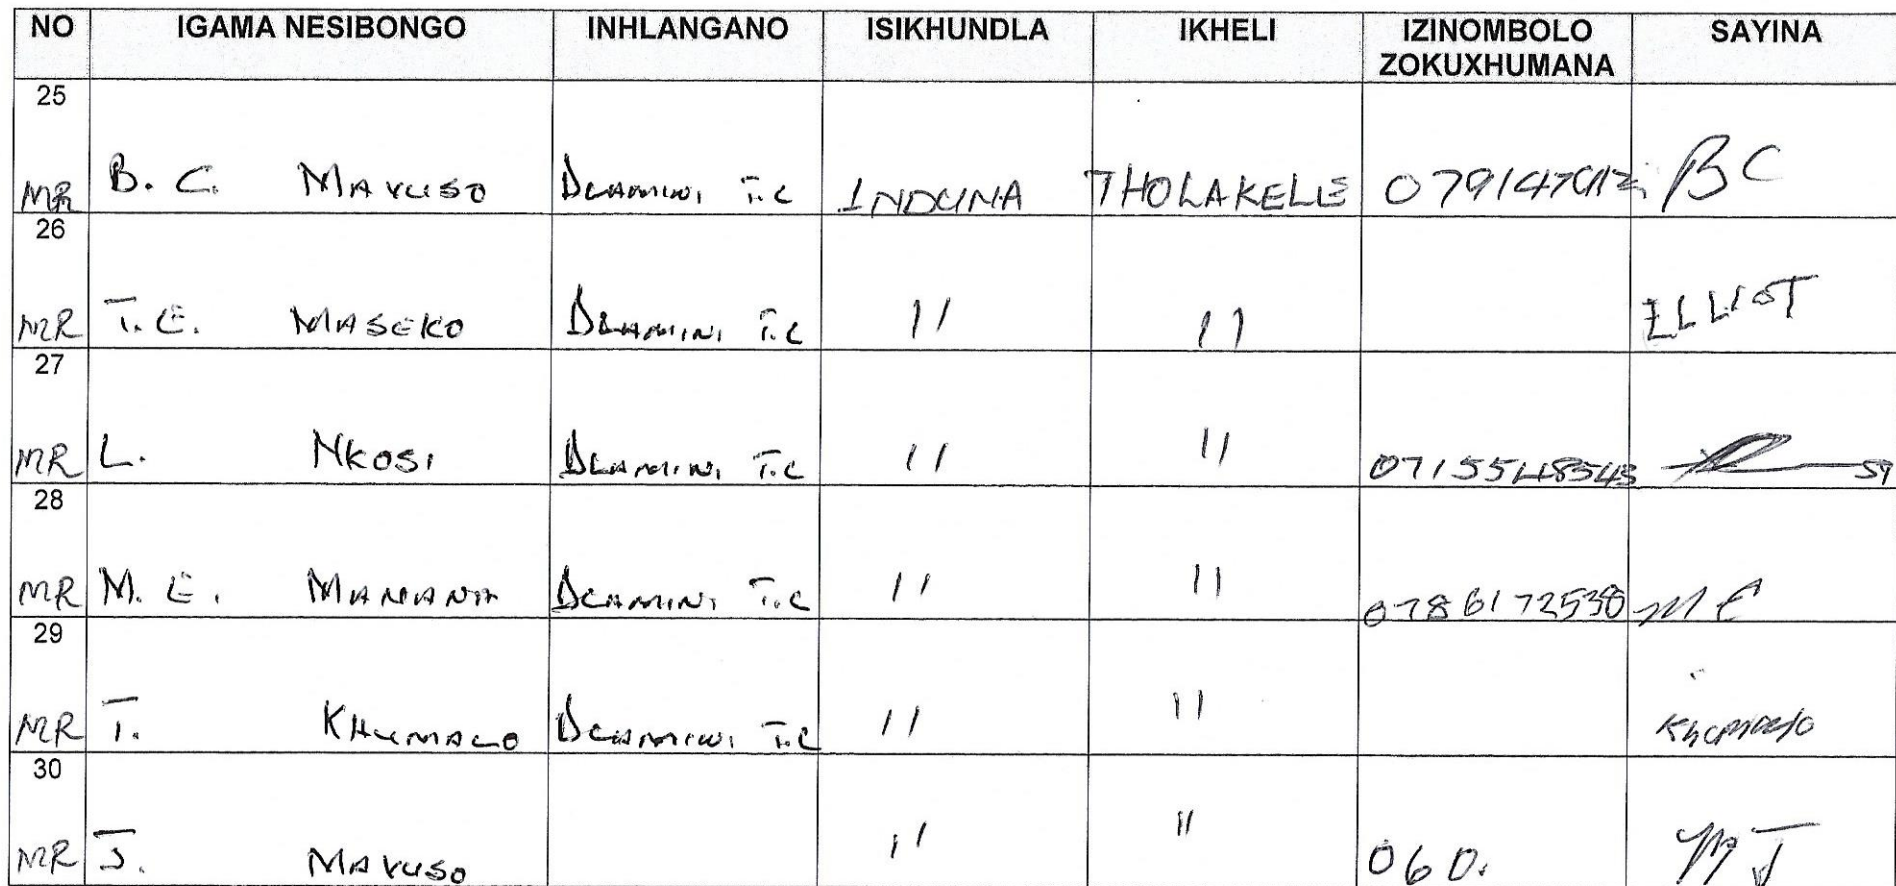 NO IGAMA NESIBONGO INHLANGANO ISIKHUNDLA IKHELI IZINOMBOLO ZOKUXHUMANA SAYINA
25
MR B. C. MAVUSO DLAMINI T.C INDUNA THOLAKELE BC
26
MR T.E. MASEKO DLAMINI T.C 11 11 ELLIOT
27
MR L. NKOSI DLAMINI T.C 11 11 0715548543
28
MR M. E. MANANA DLAMINI T.C 11 11 0786172538 ME
29
MR T. KHUMALO DLAMINI T.C 11 11 Khumalo
30
MR J. MAVUSO 11 11 060. MJ